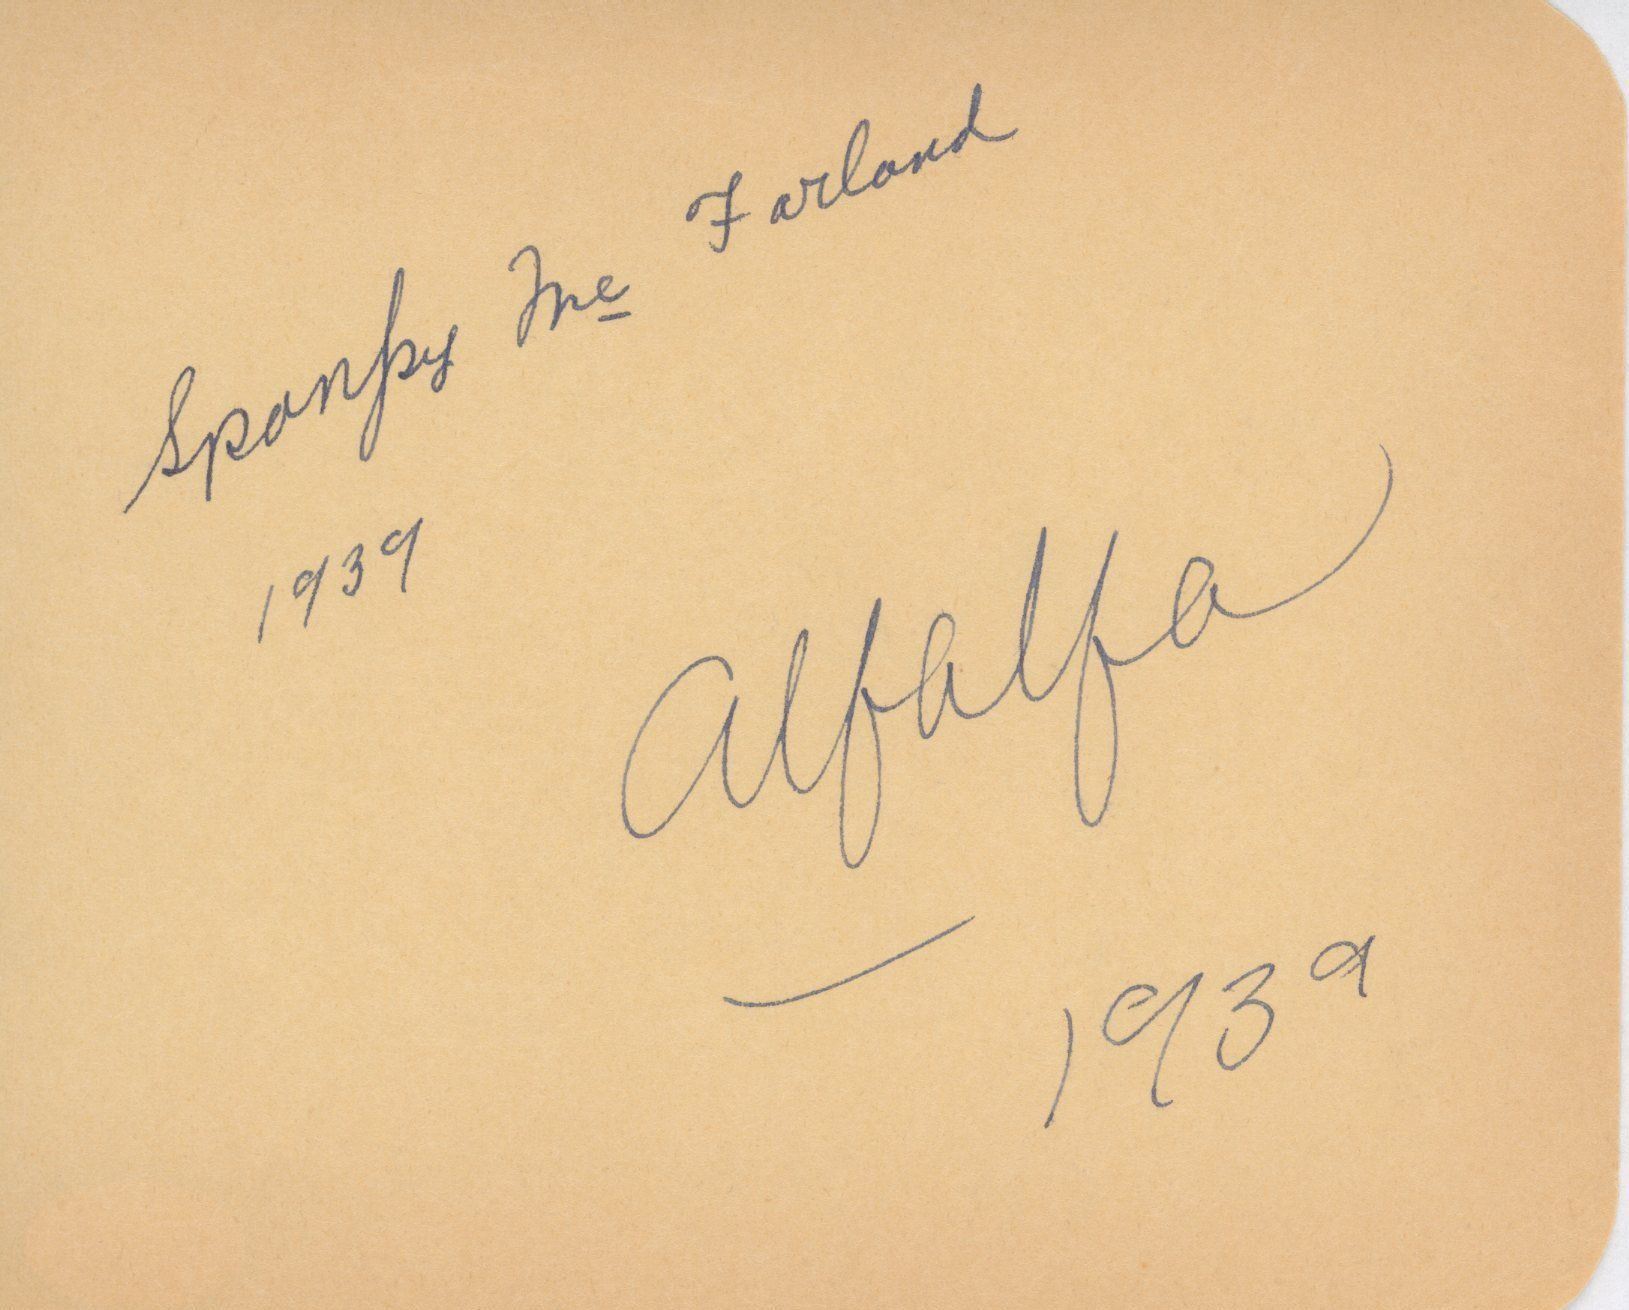 Spanky Mc Farland
1939
Alfalfa
1939